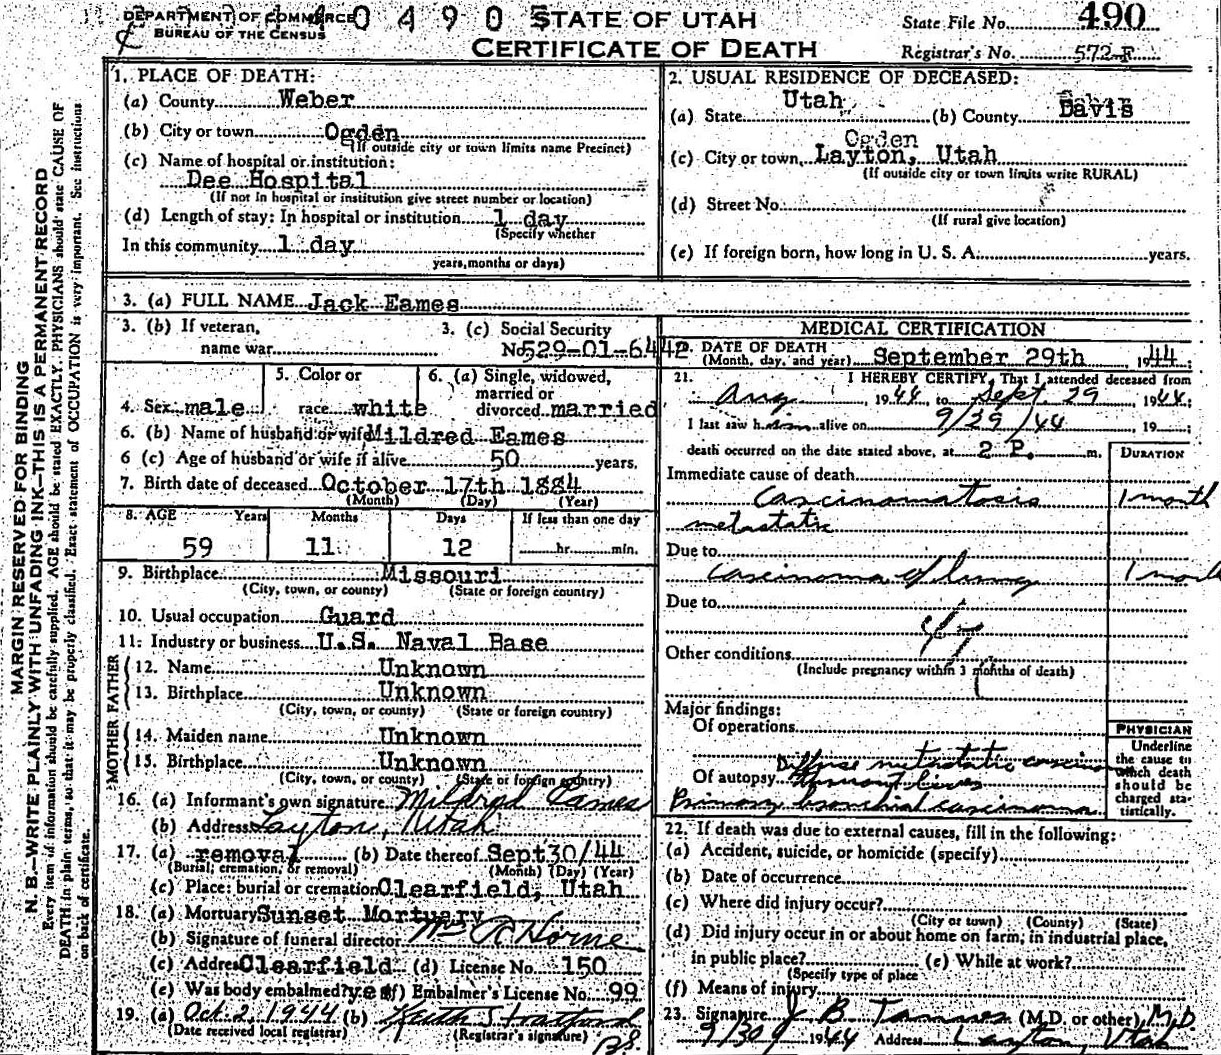 DEPARTMENT OF COMMERCE
BUREAU OF THE CENSUS
4 0 4 9 0 5
STATE OF UTAH
CERTIFICATE OF DEATH
State File No. 490
Registrar's No. 572-F
MARGIN RESERVED FOR BINDING
N. B.—WRITE PLAINLY WITH UNFADING INK—THIS IS A PERMANENT RECORD
Every item of information should be carefully supplied. AGE should be stated EXACTLY. PHYSICIANS should state CAUSE OF
DEATH in plain terms, so that it may be properly classified. Exact statement of OCCUPATION is very important. See instructions
on back of certificate.
1. PLACE OF DEATH:
(a) County Weber
(b) City or town Ogden
(If outside city or town limits name Precinct)
(c) Name of hospital or institution:
Dee Hospital
(If not in hospital or institution give street number or location)
(d) Length of stay: In hospital or institution 1 day
(Specify whether
In this community 1 day
years, months or days)
2. USUAL RESIDENCE OF DECEASED:
(a) State Utah (b) County Davis
Ogden
(c) City or town Layton, Utah
(If outside city or town limits write RURAL)
(d) Street No.
(If rural give location)
(e) If foreign born, how long in U. S. A. years.
3. (a) FULL NAME Jack Eames
3. (b) If veteran,
name war
3. (c) Social Security
No. 529-01-6442
4. Sex male
5. Color or
race white
6. (a) Single, widowed,
married or
divorced married
6. (b) Name of husband or wife Mildred Eames
6 (c) Age of husband or wife if alive 50 years.
7. Birth date of deceased October 17th 1884
(Month) (Day) (Year)
8. AGE Years Months Days If less than one day
59 11 12 hr. min.
9. Birthplace Missouri
(City, town, or county) (State or foreign country)
10. Usual occupation Guard
11. Industry or business U.S. Naval Base
FATHER
12. Name Unknown
13. Birthplace Unknown
(City, town, or county) (State or foreign country)
MOTHER
14. Maiden name Unknown
15. Birthplace Unknown
(City, town, or county) (State or foreign country)
16. (a) Informant's own signature Mildred Eames
(b) Address Layton, Utah
17. (a) removal (b) Date thereof Sept 30/44
(Burial, cremation, or removal) (Month) (Day) (Year)
(c) Place: burial or cremation Clearfield, Utah
18. (a) Mortuary Sunset Mortuary
(b) Signature of funeral director R Horne
(c) Address Clearfield (d) License No. 150
(e) Was body embalmed? yes (f) Embalmer's License No. 99
19. (a) Oct. 2, 1944 (b) Keith Stratford
(Date received local registrar) (Registrar's signature)
MEDICAL CERTIFICATION
20. DATE OF DEATH
(Month, day, and year) September 29th 1944;
21. I HEREBY CERTIFY, That I attended deceased from
Aug 1944, to Sept. 29 1944;
I last saw him alive on 9/29/44, 19
death occurred on the date stated above, at 2 P. m.
DURATION
Immediate cause of death
Carcinomatosis 1 month
metastatic
Due to
Carcinoma of lung 1 month
Due to
Other conditions
(Include pregnancy within 3 months of death)
Major findings:
Of operations
Of autopsy Diffuse metastatic carcinoma
Liver
Primary bronchial carcinoma
PHYSICIAN
Underline
the cause to
which death
should be
charged sta-
tistically.
22. If death was due to external causes, fill in the following:
(a) Accident, suicide, or homicide (specify)
(b) Date of occurrence
(c) Where did injury occur?
(City or town) (County) (State)
(d) Did injury occur in or about home on farm, in industrial place,
in public place? (e) While at work?
(Specify type of place
(f) Means of injury
23. Signature J B Tanner (M.D. or other) M.D.
9/30 1944 Address Layton, Utah